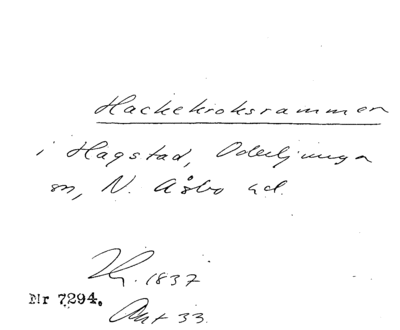 Hackekroksrammen
i Hagstad, Oderljunga
sn, N. Åsbo hd.
Th. 1837
Nr 7294.
Akt 33.